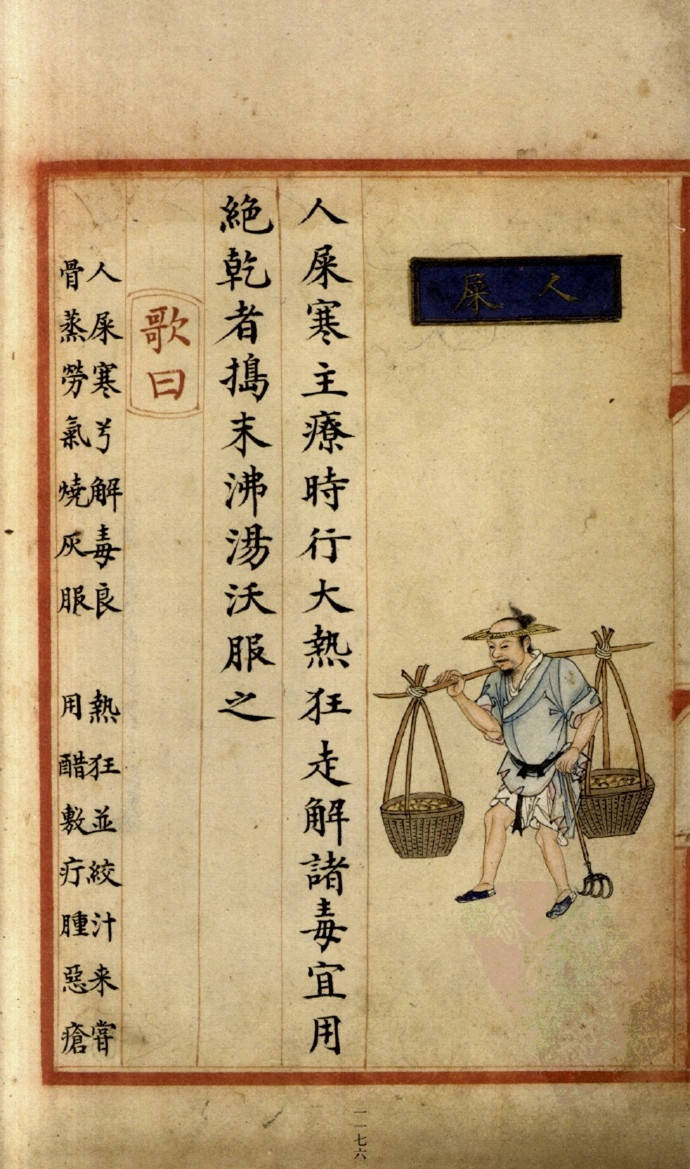 人屎
人屎寒主療時行大熱狂走解諸毒宜用
絶乾者搗末沸湯沃服之
歌曰
人屎寒兮解毒良 熱狂並絞汁来嘗
骨蒸勞氣燒灰服 用醋敷疔腫惡瘡
一一七六